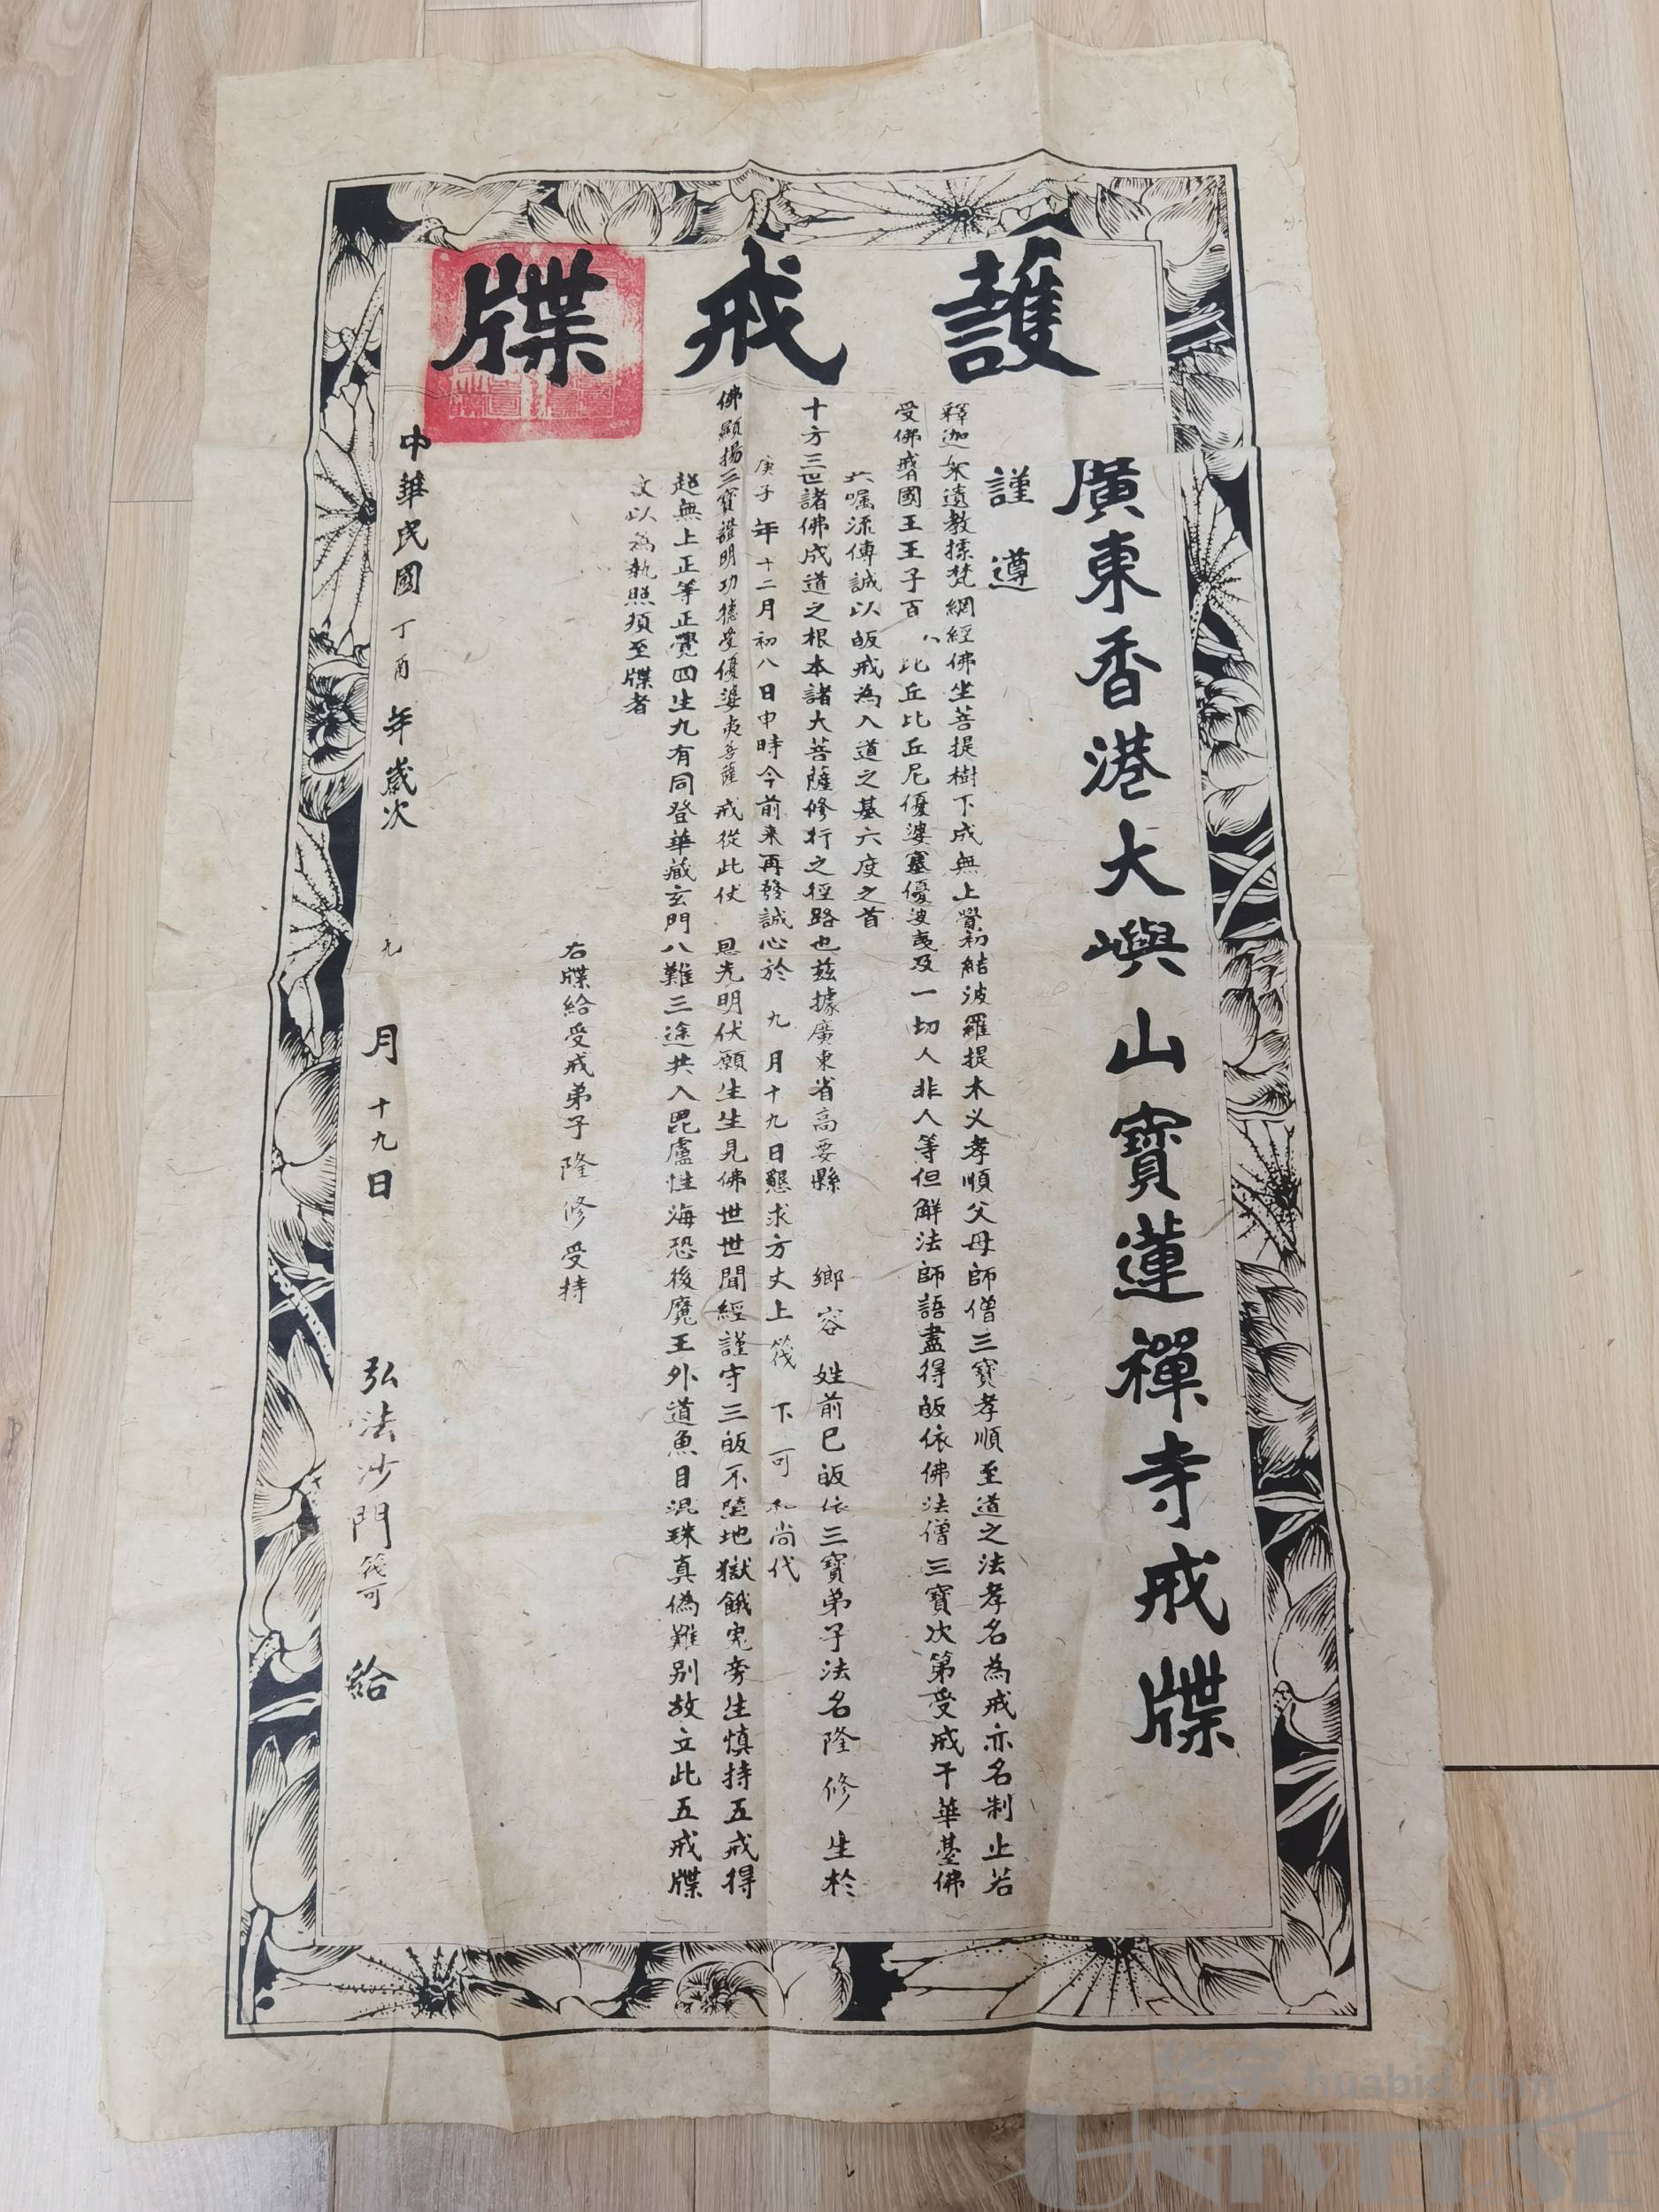 護戒牒
廣東香港大嶼山寶蓮禪寺戒牒
謹遵
釋迦遺教據梵網經佛坐菩提樹下成無上覺初結波羅提木义孝順父母師僧三寶孝順至道之法孝名為戒亦名制止若
受佛戒者國王王子百八比丘比丘尼優婆塞優婆夷及一切人非人等但解法師語盡得皈依佛法僧三寶次第受戒千華臺佛
共囑流傳誠以皈戒為入道之基六度之首
十方三世諸佛成道之根本諸大菩薩修行之徑路也茲據廣東省高要縣 鄉容姓前已皈依三寶弟子法名隆修生於
庚子年十二月初八日申時今前來再發誠心於九月十九日懇求方丈上筏下可和尚代
佛顯揚三寶證明功德受優婆夷菩薩戒從此仗 恩光明伏願生生見佛世世聞經謹守三皈不墮地獄餓鬼旁生慎持五戒得
超無上正等正覺四生九有同登華藏玄門八難三途共入毘盧性海恐後魔王外道魚目混珠真偽難别故立此五戒牒
文以為執照須至牒者
右牒給受戒弟子隆修受持
中華民國丁酉年歲次 九月十九日 弘法沙門筏可 給
华宇 huabid.com
UNIVERSE